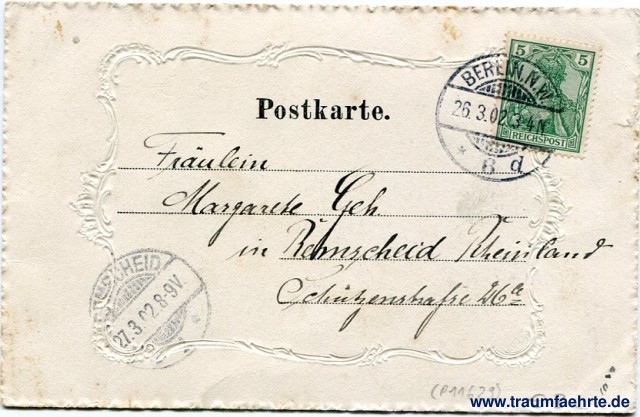 5 5
REICHSPOST
BERLIN, N.W.
26.3.02.3-4N.
* 6 d
Postkarte.
Fräulein
Margarete Geh.
in Remscheid Rheinland
Schützenstraße 26a
REMSCHEID
27.3.02.8-9V.
(P11679)
www.traumfaehrte.de